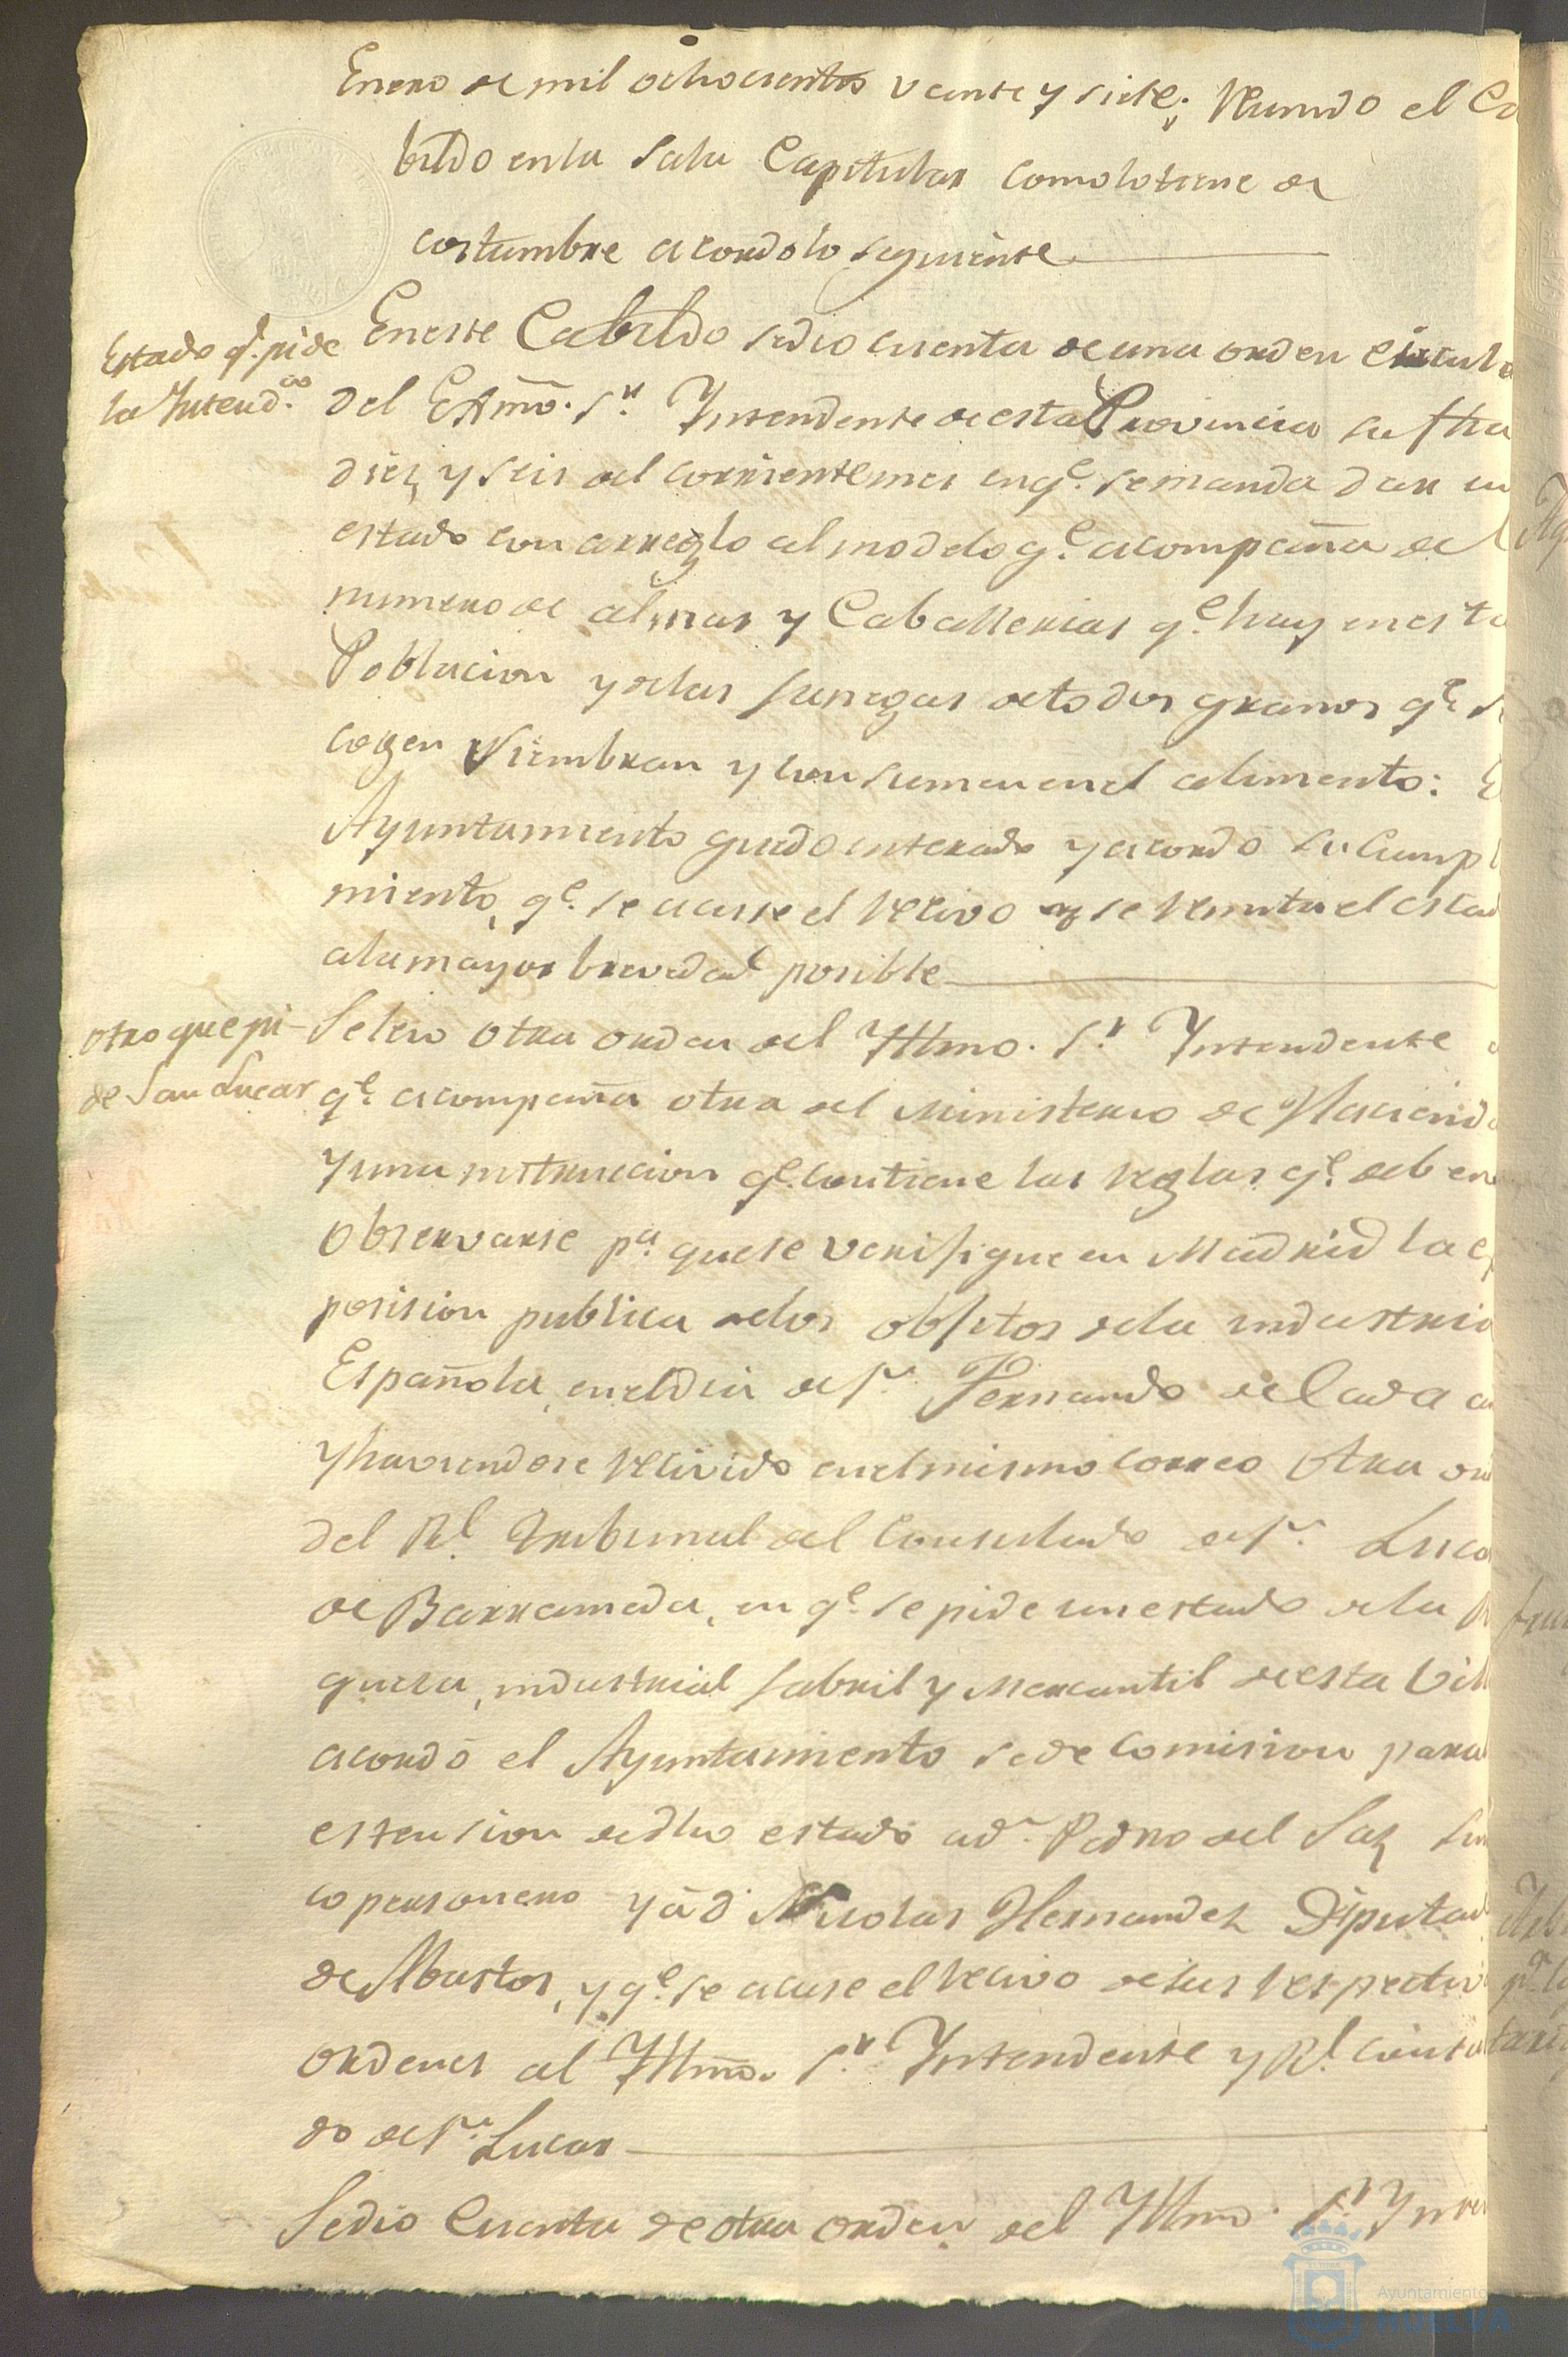 Enero de mil ochocientos veinte y siete; Reunido el Ca
bildo en la Sala Capitular como lo tiene de
costumbre acordo lo siguiente
Estado q.e pide
la Intend.a
En este Cabildo se dio cuenta de una orden circula
del Exmõ. S.r Yntendente de esta Provincia su fha
diez y seis del corriente mes en q.e se manda dar un
estado con arreglo al modelo q.e acompaña del
numero de almas y Caballerias q.e hay en esta
Poblacion y de las fanegas de todos granos q.e se
cogen siembran y consumen en el alimento: E
Ayuntamiento quedo enterado y acordó su cumpli
miento, q.e se acuse el recivo y se remita el estad
a la mayor brevedad posible
Otro que pi-
de San Lucar
Se leio otra orden del Yllmo. S.r Yntendente
q.e acompaña otra del Ministerio de Haciend
y una instruccion q.e contiene las reglas q.e deben
observarse p.a que se verifique en Madrid la es
posision publica de los objetos de la industria
Española, en el dia de S.n Fernando de cada a
y haviendose recivido en el mismo correo otra or
del R.l Tribunal del Consulado de S.n Luca
de Barrameda, en q.e se pide un estado de la ri
queza, industrial fabril y mercantil de esta Vill
acordó el Ayuntamiento se de comision para
estension de dho estado a d.n Pedro del Saz Sin
co personero y á d.n Nicolas Hernandez Diputad
de Abastos, y q.e se acuse el recivo de sus respectiv
ordenes al Yllmõ. S.r Yntendente y R.l Consula
do de S.n Lucar
Se dio cuenta de otra orden del Yllmõ. S.r Ynten
Ayuntamiento
HUELVA